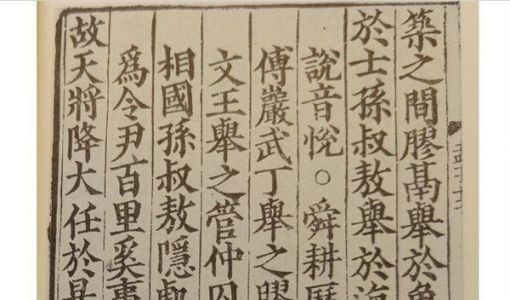 築之間膠鬲舉於魚
於士孫叔敖舉於海
說音悅○舜耕歷
傅巖武丁舉之膠
文王舉之管仲囚
相國孫叔敖隱處
爲令尹百里奚事
故天將降大任於是